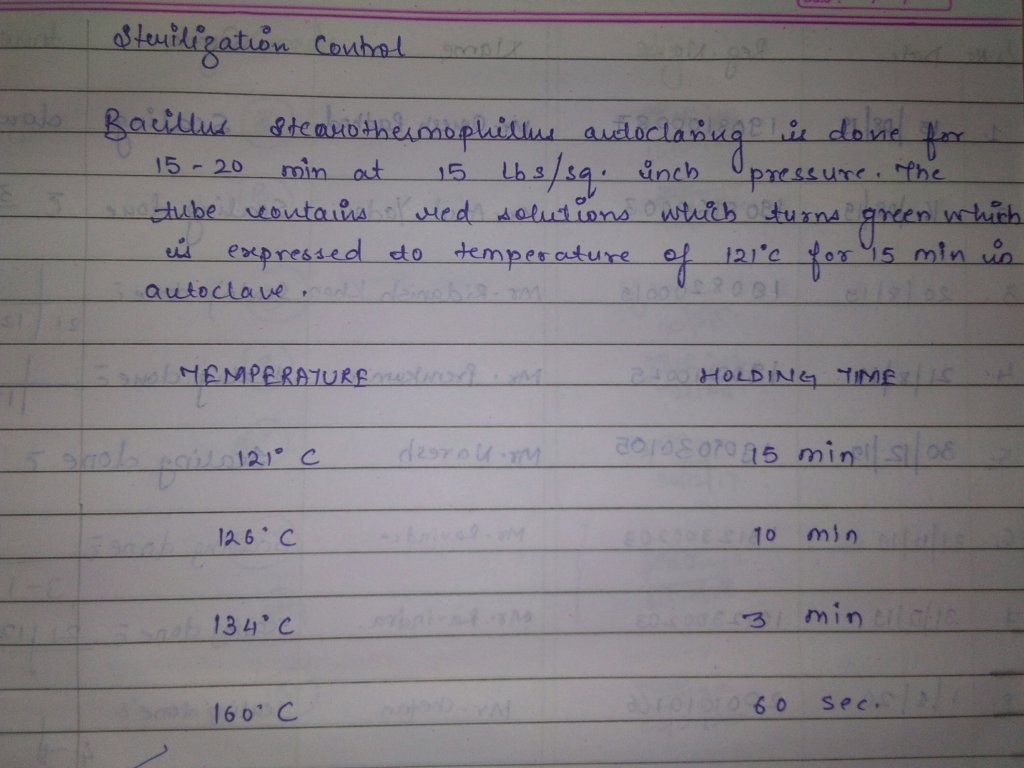 Sterilization Control
Bacillus Stearothermophillus autoclaving is done for
15-20 min at 15 Lbs/sq. inch pressure. The
tube contains red solutions which turns green which
is expressed to temperature of 121°C for 15 min in
autoclave.
TEMPERATURE HOLDING TIME
121° C 15 min
126° C 10 min
134° C 3 min
160° C 60 sec.